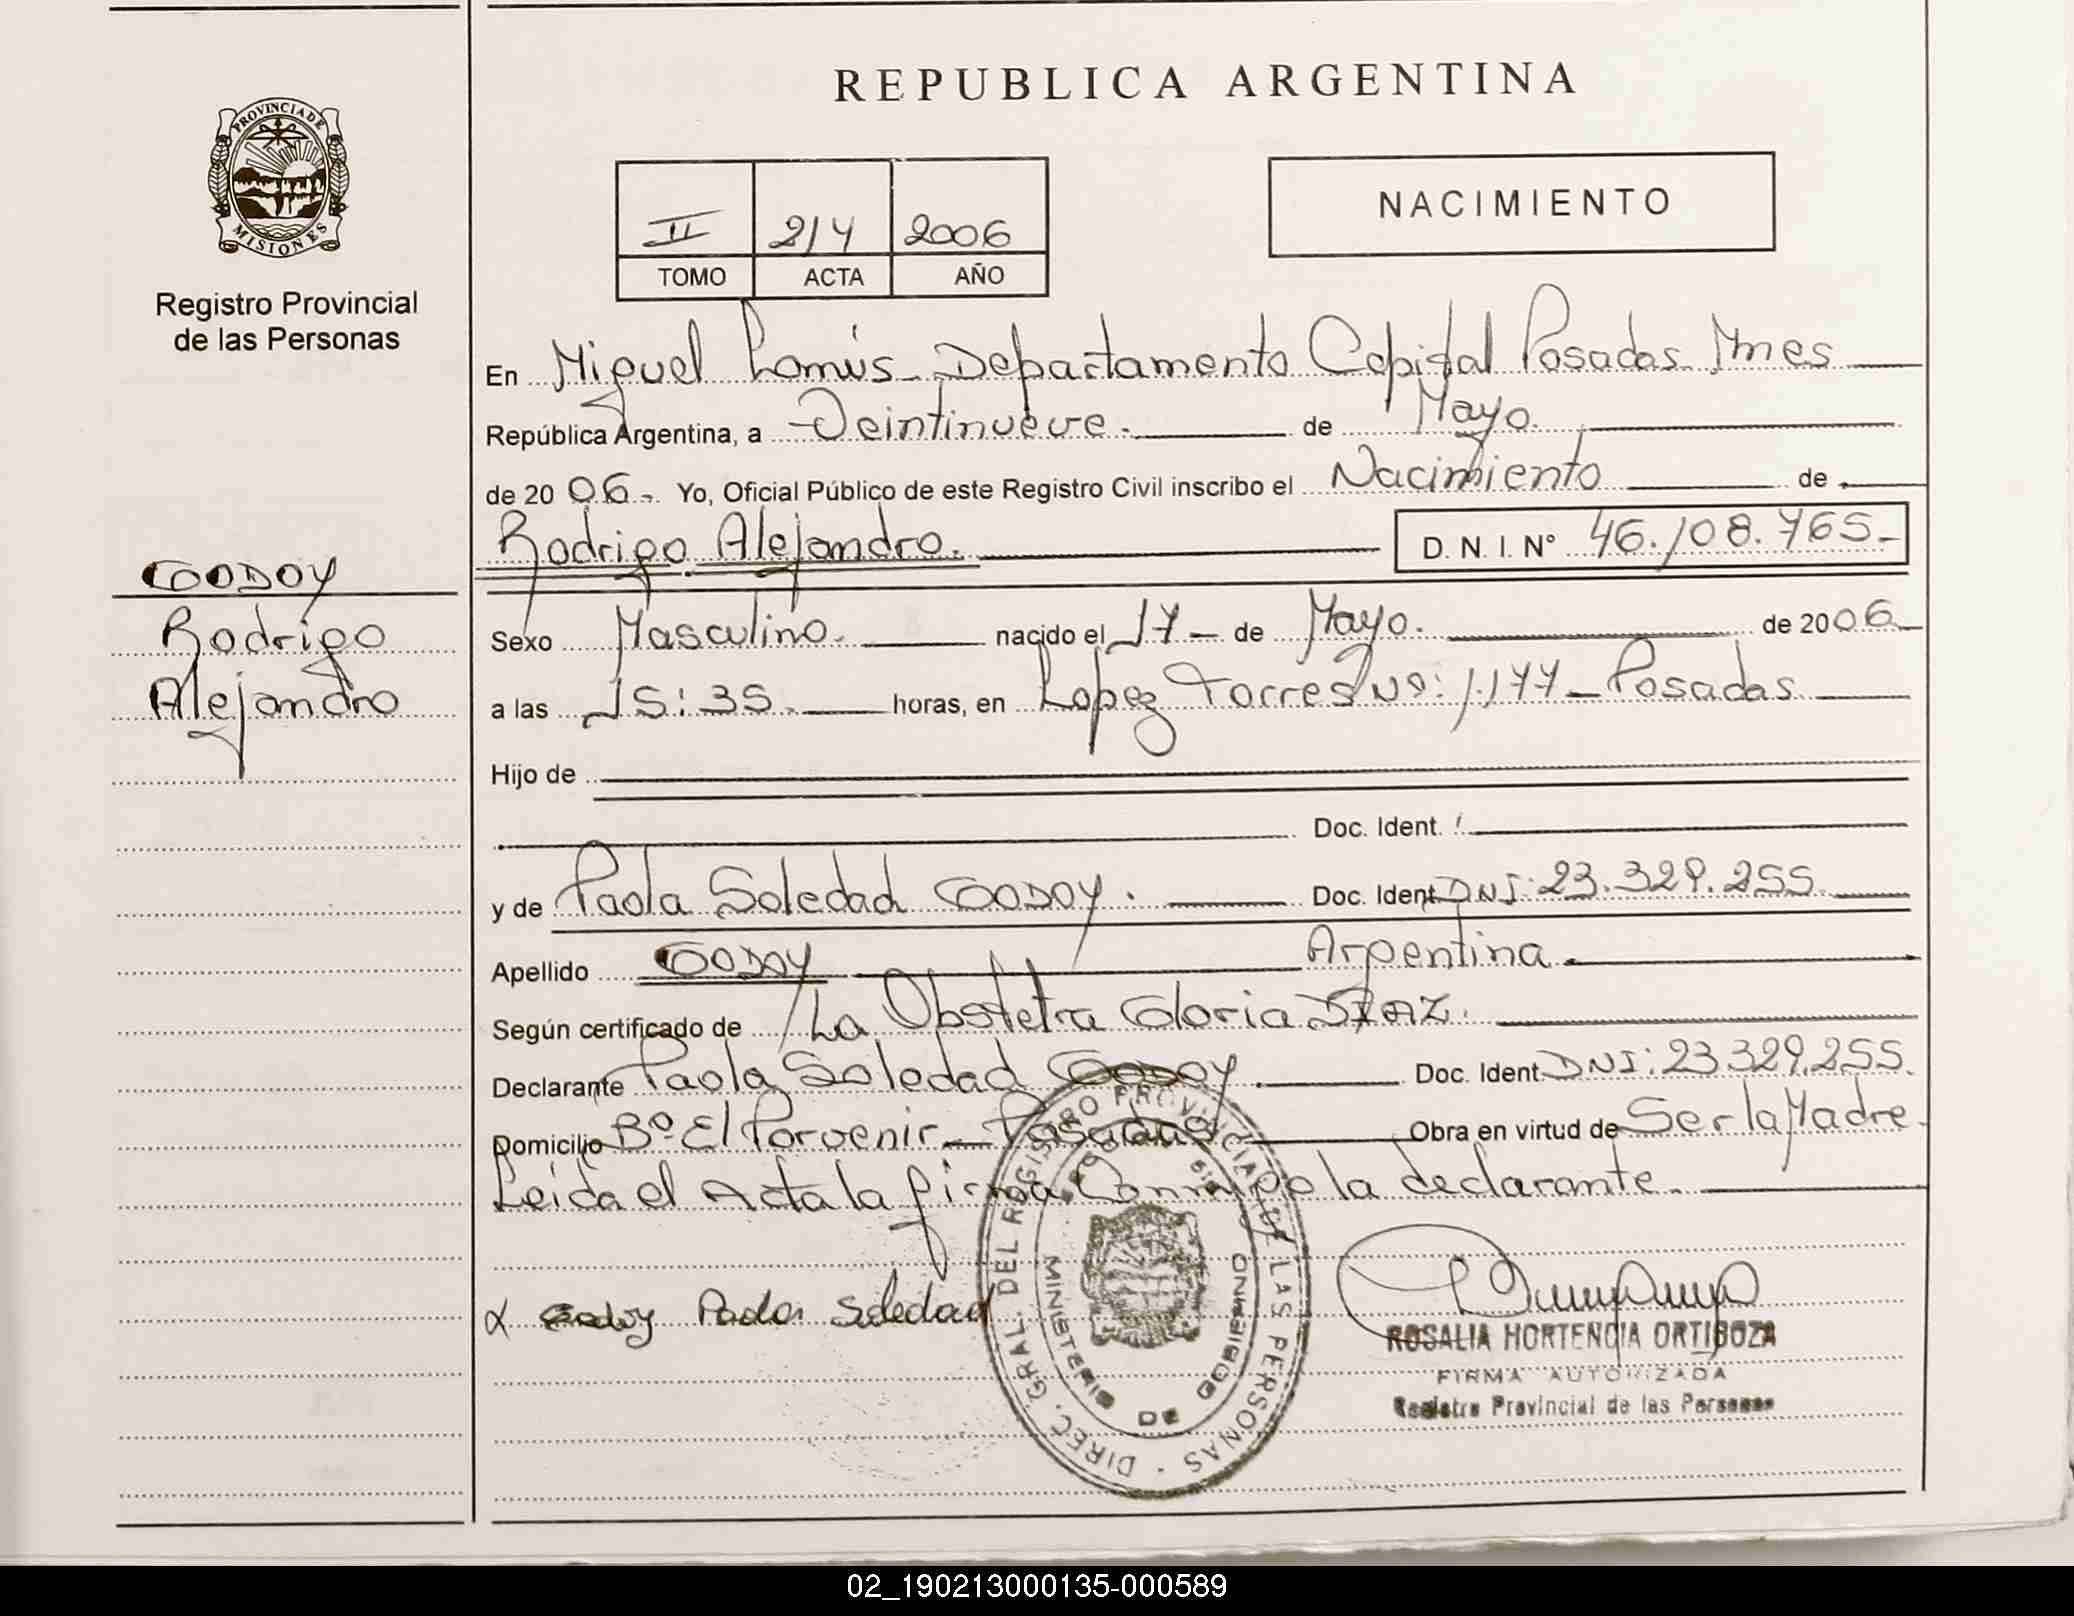 REPUBLICA ARGENTINA
PROVINCIA DE
MISIONES
Registro Provincial
de las Personas
II 214 2006
TOMO ACTA AÑO
NACIMIENTO
En Miguel Lanús Departamento Capital Posadas Mnes
República Argentina, a Veintinueve. de Mayo.
de 2006- Yo, Oficial Público de este Registro Civil inscribo el Nacimiento de
Rodrigo Alejandro. D. N. I. N° 46.108.765-
GODOY
Rodrigo
Alejandro
Sexo Masculino. nacido el 17- de Mayo. de 2006-
a las 15:35. horas, en Lopez Torres Nº: 1.177- Posadas
Hijo de
Doc. Ident.
y de Paola Soledad GODOY. Doc. Ident DNI: 23.329.255
Apellido GODOY Argentina.
Según certificado de La Obstetra Gloria DIAZ.
Declarante Paola Soledad GODOY. Doc. Ident. DNI: 23.329.255.
Domicilio Bº El Porvenir- Posadas Obra en virtud de Ser la Madre.
Leida el Acta la firma Conmigo la declarante.
Godoy Paola Soledad
DIREC. GRAL. DEL REGISTRO PROVINCIAL DE LAS PERSONAS
MINISTERIO DE GOBIERNO
ROSALIA HORTENCIA ORTIBOZA
FIRMA AUTORIZADA
Registro Provincial de las Personas
02_190213000135-000589